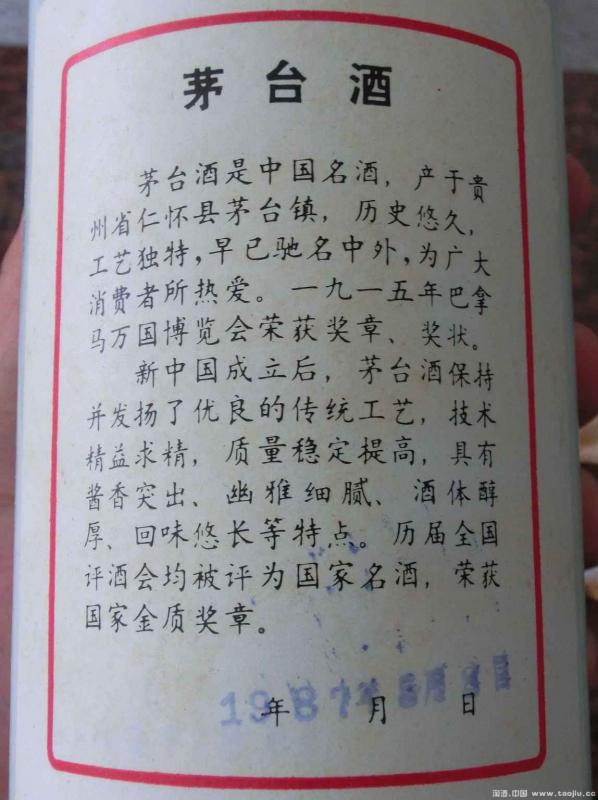 茅台酒
茅台酒是中国名酒，产于贵
州省仁怀县茅台镇，历史悠久，
工艺独特，早已驰名中外，为广大
消费者所热爱。一九一五年巴拿
马万国博览会荣获奖章、奖状。
新中国成立后，茅台酒保持
并发扬了优良的传统工艺，技术
精益求精，质量稳定提高，具有
酱香突出、幽雅细腻、酒体醇
厚、回味悠长等特点。历届全国
评酒会均被评为国家名酒，荣获
国家金质奖章。
1987年 月 日
年 月 日
淘酒.中国 www.taojiu.cc